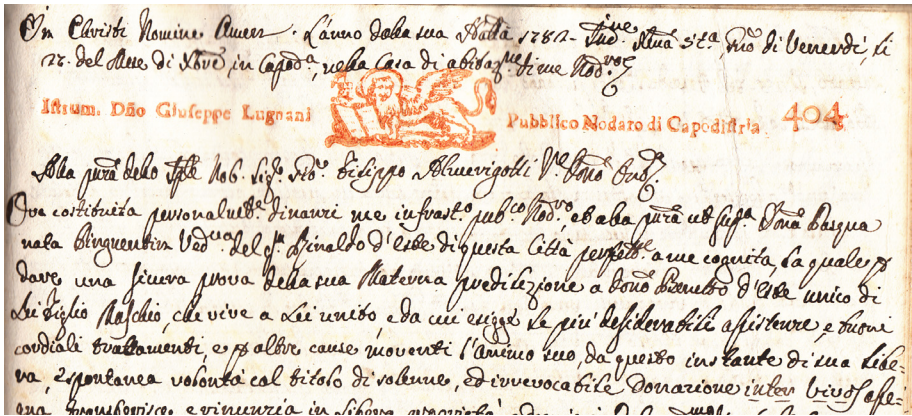 In Christi Nomine Amen. L'anno dalla sua Nattà 1782 Ind.ne Rma XV.a, Gno di Venerdì, li
27. del Mese di Xbre, in Capod.a, nella Casa di abitaz.ne di me Nod.ro
Istrum. Dño Giuseppe Lugnani Pubblico Nodaro di Capodistria. 404
Alla pñza dello Nob. Sig. Sio. Filippo Almerigotti V.
Qui costituita personalmte dinanzi me infrasto pubco Nodro, et alla pñza ut supa Donna Pasqua
nata Pinguentin Vedua del qm Rinaldo d'Este di questa Città a me cognita, la quale p
dare una sincera prova della sua Materna predilezione a d'Este unico di
Lei Figlio Maschio, che vive a Lei unito, e da cui esigge le più desiderabili assistenze, e buoni
cordiali trattamenti, e p altre cause moventi l'animo suo, da questo instante di sua libe-
ra, e spontanea volontà col titolo di solenne, ed irrevocabile Donazione inter vivos asse-
gna, transferisce, e rinunzia in libera